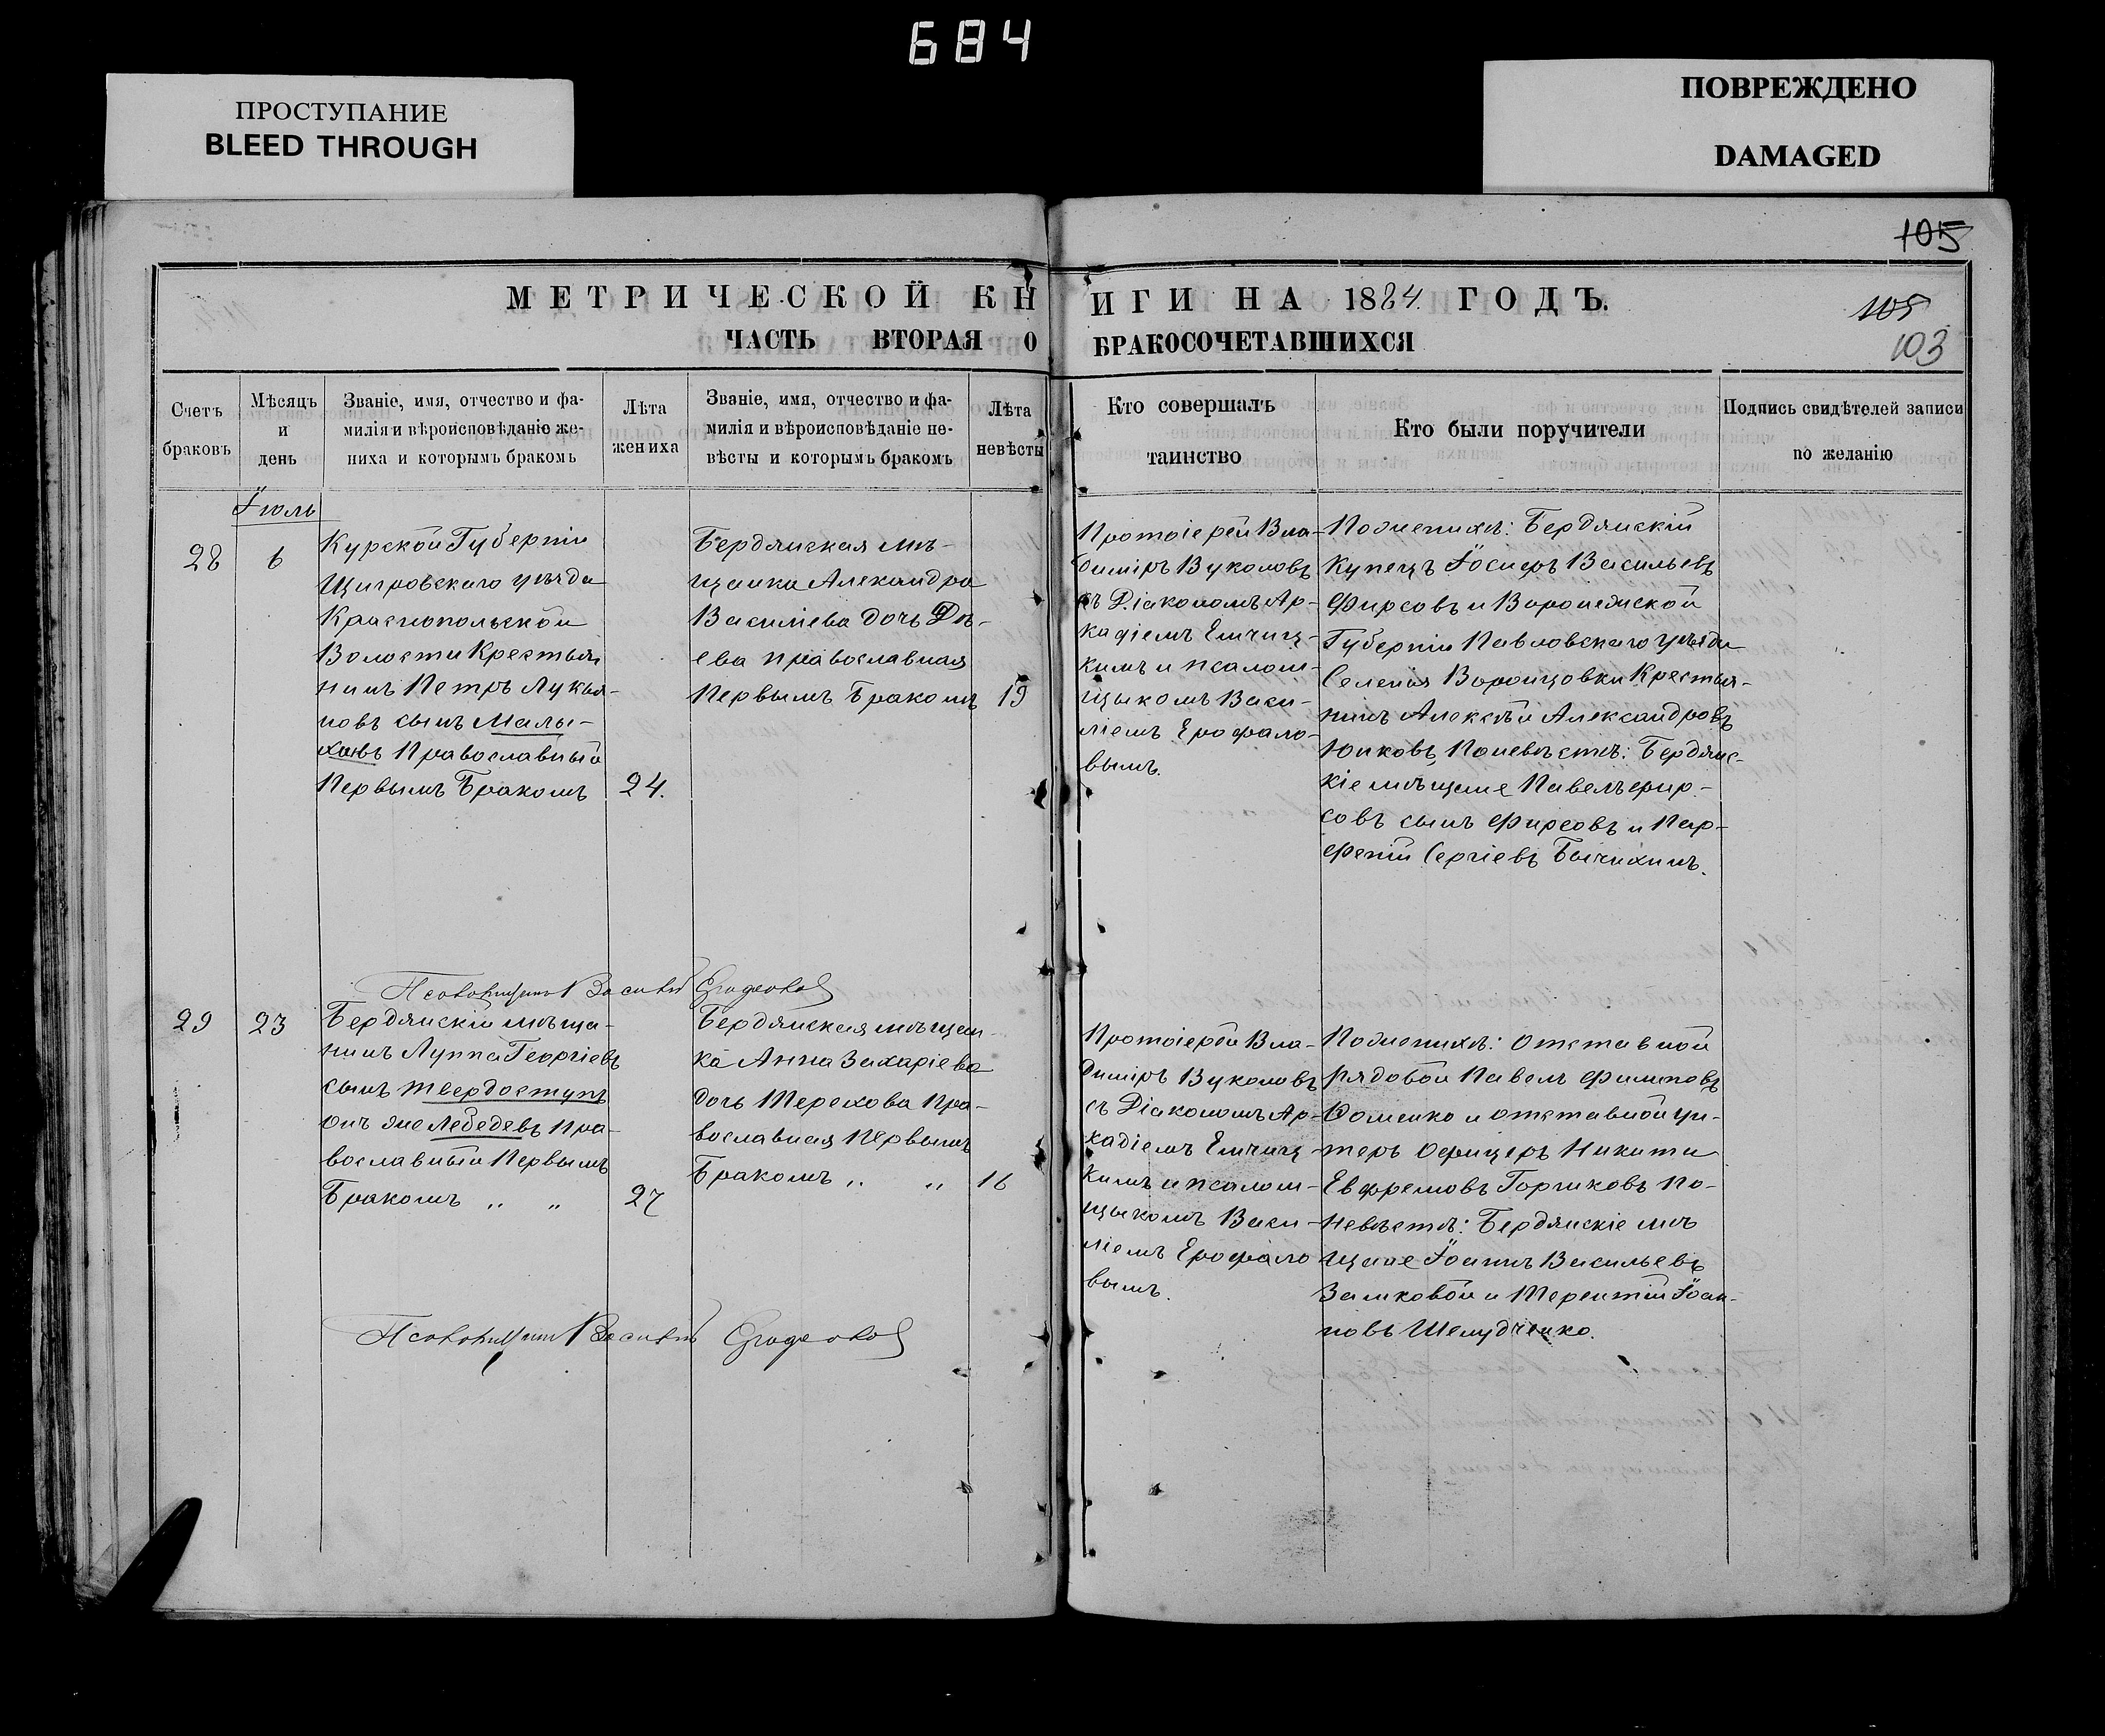 684
ПРОСТУПАНИЕ
BLEED THROUGH
ПОВРЕЖДЕНО
DAMAGED
105
МЕТРИЧЕСКОЙ КНИГИ НА 1884. ГОДЪ.
105
ЧАСТЬ ВТОРАЯ О БРАКОСОЧЕТАВШИХСЯ
103
Счетъ
браковъ
Мѣсяцъ
и
день
Званіе, имя, отчество и фа-
милія и вѣроисповѣданіе же-
ниха и которымъ бракомъ
Лѣта
жениха
Званіе, имя, отчество и фа-
милія и вѣроисповѣданіе не-
вѣсты и которымъ бракомъ
Лѣта
невѣсты
Кто совершалъ
таинство
Кто были поручители
Подпись свидѣтелей записи
по желанію
Іюль
28
6
Курской Губерніи
Щигровскаго уѣзда
Краснопольской
Волости Крестья
нинъ Петръ Лукья-
новъ сынъ Малы-
ховъ Православный
Первымъ Бракомъ
24.
Бердянская мѣ-
щанка Александра
Василіева дочь Дѣ-
ева православная
Первымъ Бракомъ
19
Протоіерей Вла-
диміръ Вуколовъ
съ Діакономъ Ар-
кадіемъ Емчиц-
кимъ и псалом-
щыкомъ Васи-
ліемъ Ерофало-
вымъ.
По женихѣ: Бердянскій
Купецъ Іосифъ Васильевъ
Фирсовъ и Воронежской
Губерніи Павловскаго уѣзда
Селенія Воронцовки Крестья-
нинъ Алексѣй Александровъ
Юнковъ, По невѣстѣ: Бердянс-
кіе мѣщане Павелъ Фир-
совъ сынъ Фирсовъ и Пар-
феній Сергіевъ Бычихинъ.
Псаломщикъ Василій
29
23
Бердянскій мѣща-
нинъ Луппа Георгіевъ
сынъ Твердоступъ
онъ же Лебедевъ Пра-
вославный Первымъ
Бракомъ „ „
27
Бердянская мѣщан-
ка Анна Захаріева
дочь Терехова Пра-
вославная Первымъ
Бракомъ „ „
16
Протоіерей Вла-
диміръ Вуколовъ
съ Діакономъ Ар-
кадіемъ Емчиц-
кимъ и псалом-
щыкомъ Васи-
ліемъ Ерофало
вымъ.
По женихѣ: Отставной
рядовой Павелъ Филиповъ
Фоменко и отставной Ун-
теръ Офицеръ Никита
Евфремовъ Горчиковъ По-
невѣстѣ: Бердянскіе мѣ
щане Іоаннъ Васильевъ
Замковой и Терентій Іоан-
новъ Шелудченко.
Псаломщикъ Василій